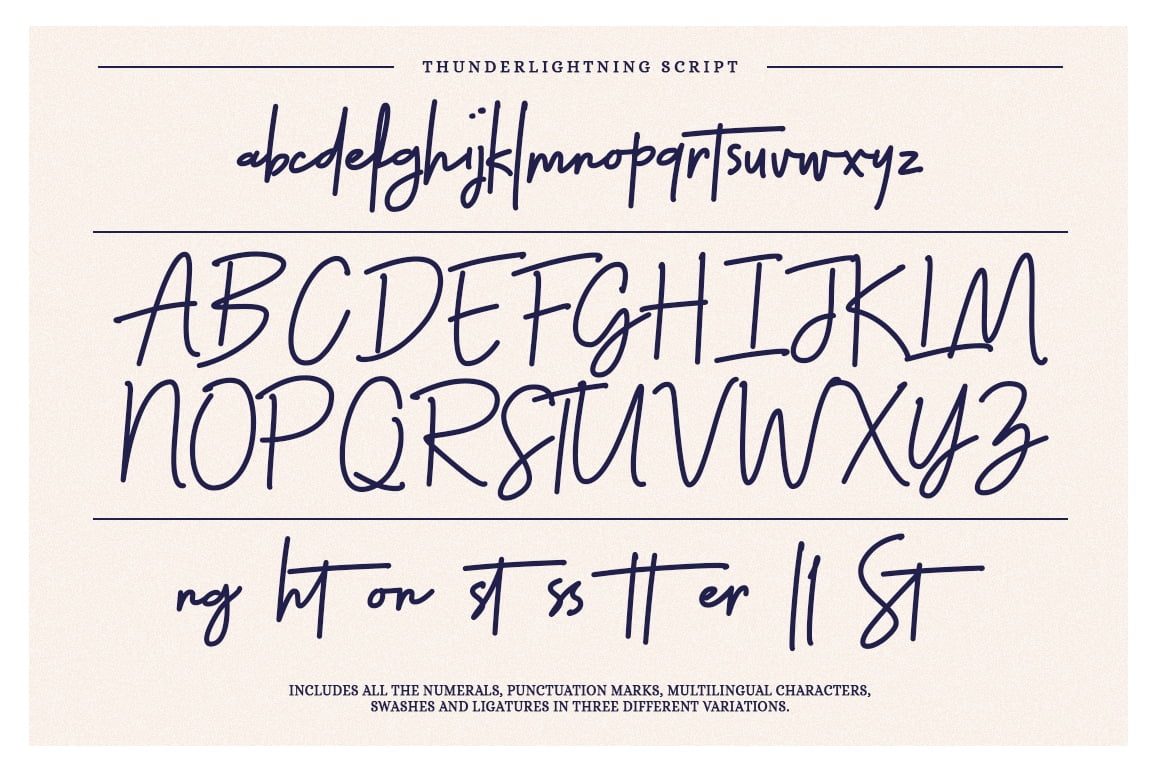 THUNDERLIGHTNING SCRIPT
abcdefghijklmnopqrstuvwxyz
ABCDEFGHIJKLM
NOPQRSTUVWXYZ
ng ht on st ss tt er ll St
INCLUDES ALL THE NUMERALS, PUNCTUATION MARKS, MULTILINGUAL CHARACTERS,
SWASHES AND LIGATURES IN THREE DIFFERENT VARIATIONS.